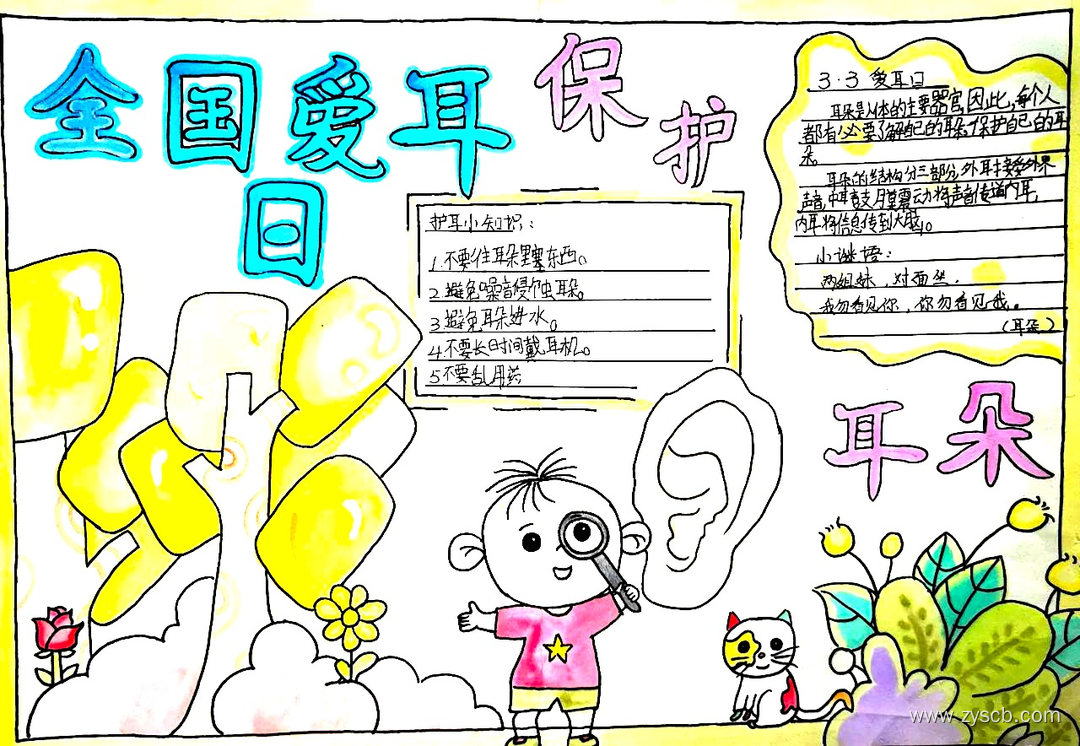 全国爱耳日
保护
耳朵
护耳小知识：
1.不要往耳朵里塞东西。
2.避免噪音侵蚀耳朵。
3避免耳朵进水。
4.不要长时间戴耳机。
5不要乱用药
3·3爱耳日
耳朵是人体的主要器官,因此,每个人
都有必要了解自己的耳朵,保护自己的耳
朵。
耳朵的结构分三部分,外耳接受外界
声音,中耳鼓膜震动将声音传道内耳,
内耳将信息传到大脑。
小谜语：
两姐妹，对面坐，
我勿看见你，你勿看见我。
（耳朵）
www.zyscb.com